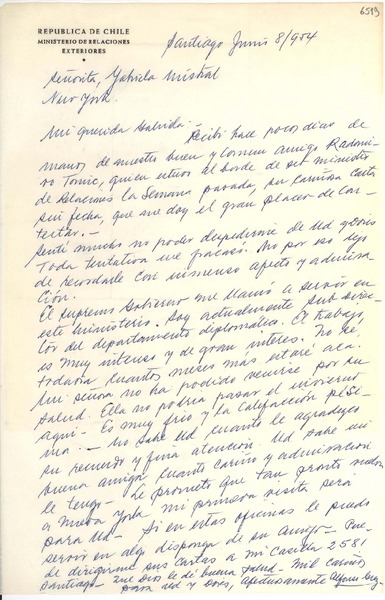 6519
REPUBLICA DE CHILE
MINISTERIO DE RELACIONES
EXTERIORES
Santiago Junio 8/954
Señorita, Gabriela Mistral
New York.
Mi querida Gabriela: Recibí hace pocos días de
manos de nuestro buen y común amigo Radomi-
ro Tomic, quien estuvo al borde de ser ministro
de Relaciones la Semana pasada, su cariñosa carta
sin fecha, que me doy el gran placer de con-
testar.-
Sentí mucho no poder despedirme de Ud y Doris
Toda tentativa me fracasó. No por eso dejo
de recordarle con inmenso afecto y admira-
ción.
El Supremo Gobierno me llamó a servir en
este ministerio. Soy actualmente Sub direc-
tor del departamento diplomático. El trabajo
es muy intenso y de gran interés. No sé,
todavía cuantos meses más estaré acá.
Mi señora no ha podido venirse por su
salud. Ella no podría pasar el invierno
aquí - Es muy frío y la Calefacción pési-
ma. - No sabe Ud cuanto le agradezco
su recuerdo y fina atención. Ud sabe mi
buena amiga cuanto cariño y admiración
le tengo - Le prometo que tan pronto vuelva
a Nueva York mi primera visita será
para Ud - Si en estas oficinas le puedo
servir en algo disponga de su amigo - Pue-
de dirigirme sus cartas a mi Casilla 2581
Santiago - Que Dios le dé buena salud - Mil cariños
para Ud y Doris, afectuosamente Alfonso